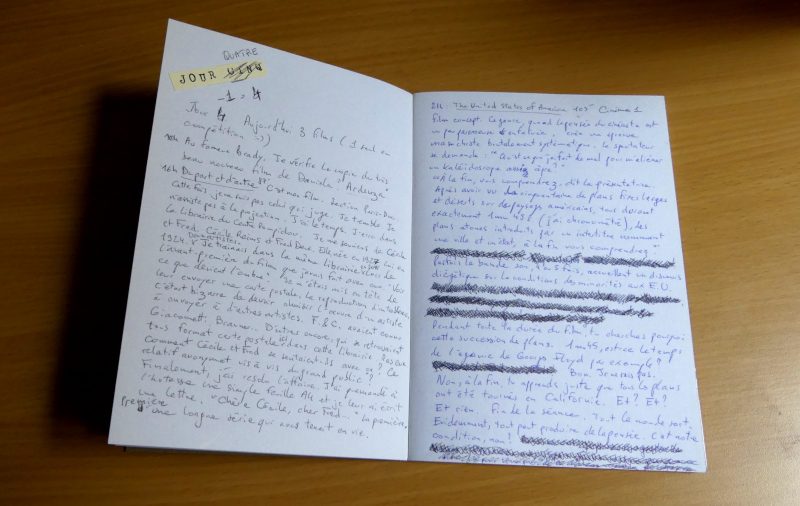 QUATRE
JOUR
-1 = 4
Jour 4 Aujourd'hui 3 films (1 seul en
compétition)
10h Au
beau nouveau film de Daniela
16h Du part et d'autre C'est mon film. Section
Cette fois, je ne suis pas celui qui juge. Je tremble. Je
n'assiste pas à la projection. J'ai le temps. J'erre dans
la librairie du Centre Pompidou. Je me souviens de Cécile
et Fred. Cécile Reims et Fred Deux. Elle née en 1927 lui en
1924. Je dans la même librairie
l'avant première du film que j'avais fait avec eux "
ce que devient l'ombre". Je m'étais mis en tête de
leur envoyer une carte postale, la reproduction d'
C'était bizarre de devoir choisir l'oeuvre d'un artiste
à envoyer à d'autres artistes. F. & C. avaient connu
Giacometti. Brauner. D'autres encore, qui se retrouvaient
tous format carte postale dans cette librairie.
Comment Cécile et Fred se sentaient-ils avec ça ? Ce
relatif anonymat vis à vis du grand public ?
Finalement, j'ai résolu l'affaire. J'ai demandé à
l'hôtesse une simple feuille A4 et je leur ai écrit
une lettre. "Chère Cécile, cher Fred.." La première,
Première
d'une longue série qui nous tenait en vie.
21h : The United States of America 103" Cinéma 1
film concept. Ce genre, quand la pensée du cinéaste est
un peu paresseuse crée une épreuve
masochiste brutalement systématique. Le spectateur
se demande : "Qu'est ce que j'ai fait de mal pour m'aliéner
un kaléidoscope âpre ?"
"A la fin, vous comprendrez", dit la présentatrice.
Après avoir vu une cinquantaine de plans fixes larges
et déserts sur des paysages américains, tous durant
exactement 1mn 45s (j'ai chronométré), des
plans atones introduits par un intertitre nommant
une ville et un état, "à la fin vous comprendrez"
Parfois la bande son, 4 ou 5 fois, accueillent un discours
diégétique sur la conditions des minorités aux E.U.
Pendant toute la durée du film, tu cherches pourquoi
cette succession de plans. 1mn45, est-ce le temps
de l'agonie de George Floyd par exemple ?
Bon. Je ne sais pas.
Non, à la fin, tu apprends juste que tous les plans
ont été tournés en Californie. Et ? Et ?
Et rien. Fin de la séance. Tout le monde sort.
Evidemment, tout peut produire de la pensée. C'est notre
condition, non ?